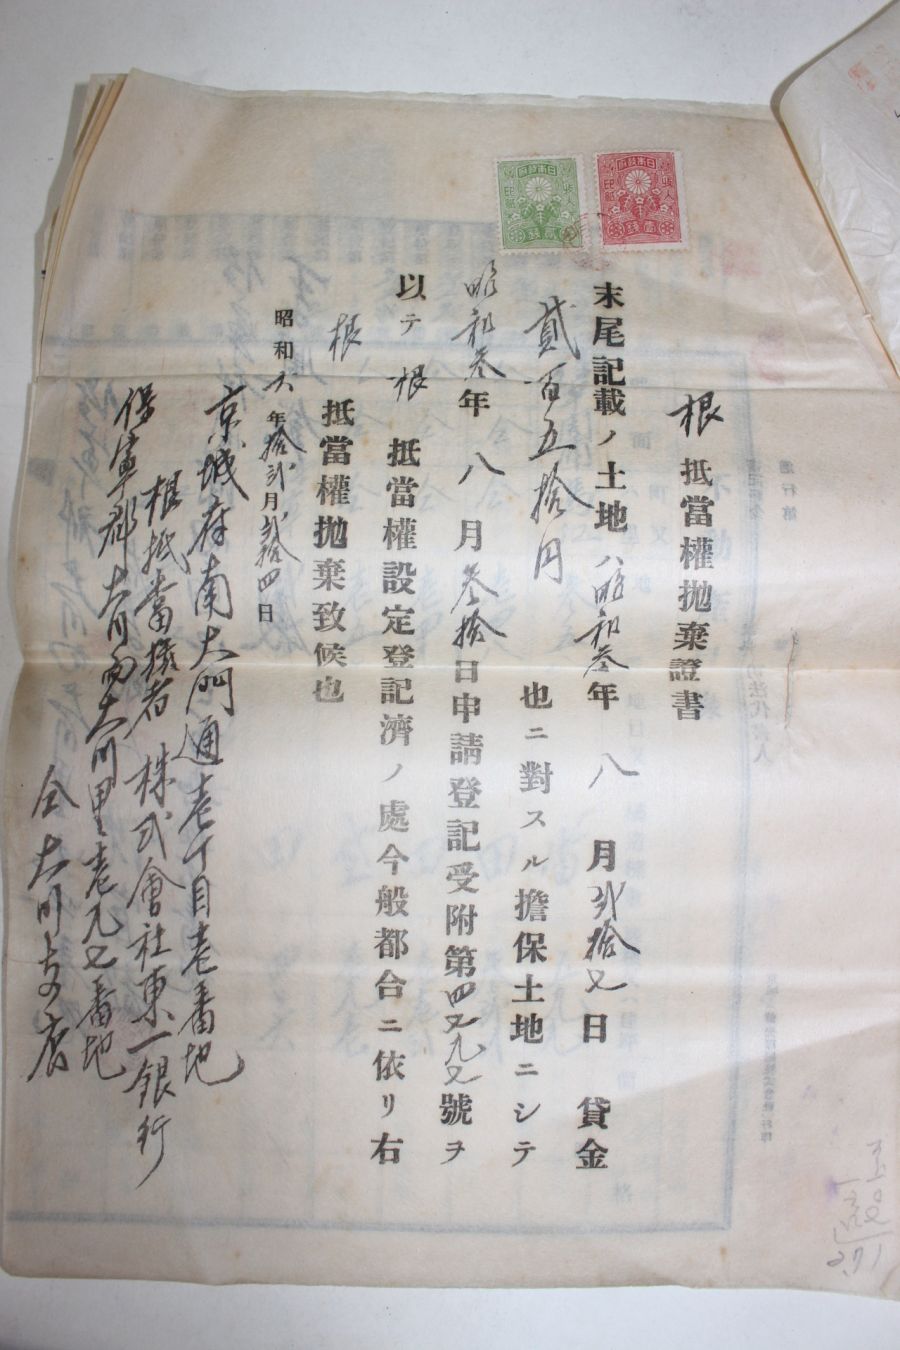 根抵當權抛棄證書
末尾記載ノ土地ハ昭和叁年八月弐拾七日貸金
貳百五拾円也ニ對スル擔保土地ニシテ
昭和叁年八月叁拾日申請登記受附第四七九七號ヲ
以テ根抵當權設定登記濟ノ處今般都合ニ依リ右
根抵當權抛棄致候也
昭和六年拾弐月弐拾四日
京城府南大門通壱丁目壱番地
根抵當權者 株式會社東一銀行
大川面大川里壱九七番地
仝大川支店